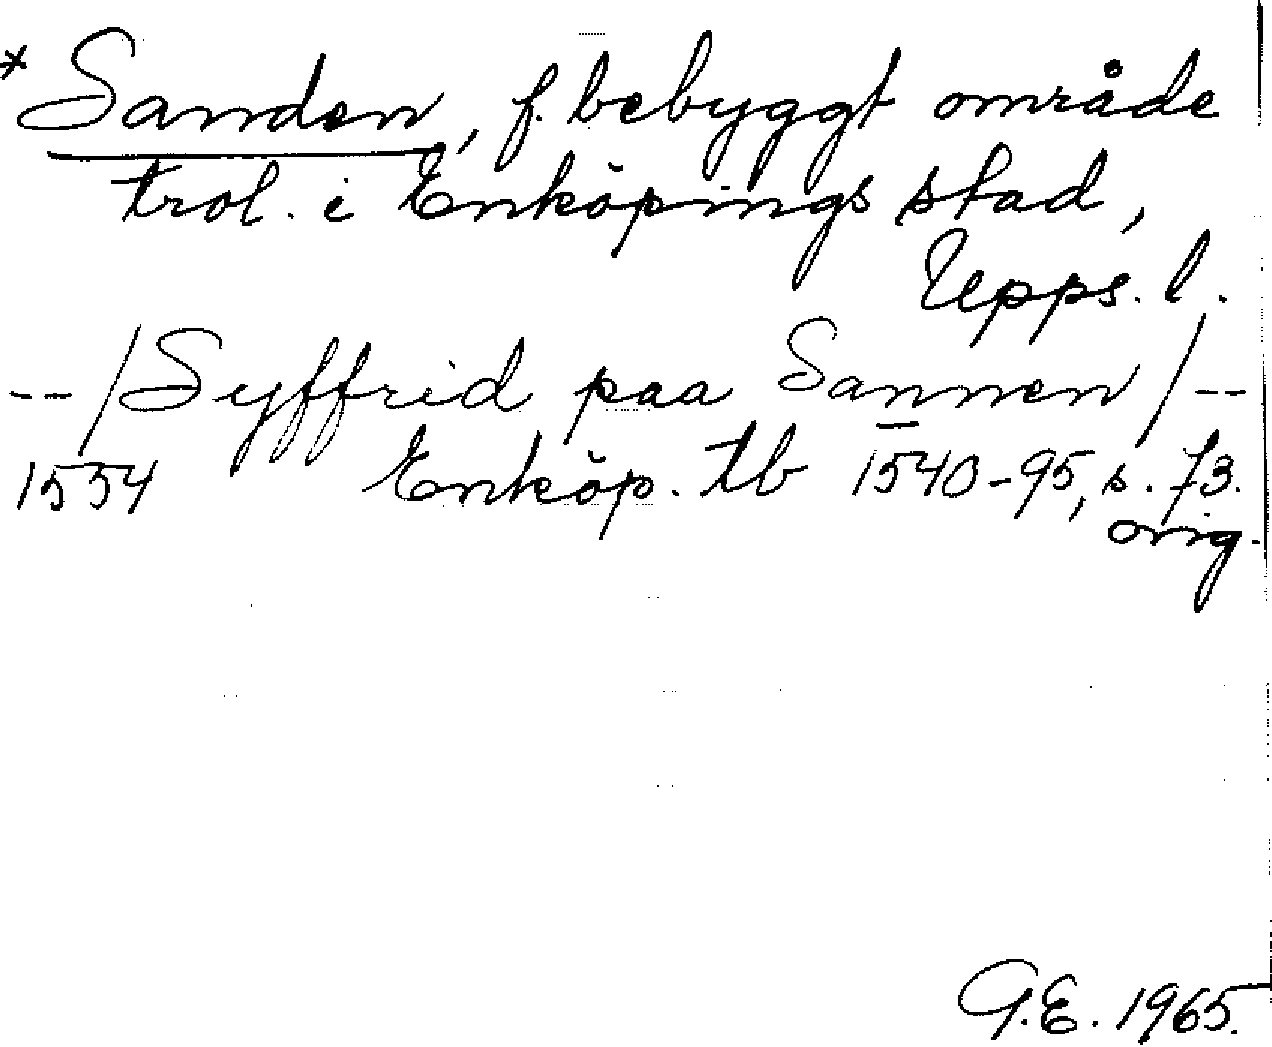 * Sanden, f. bebyggt område
trol. i Enköpings stad,
Upps. l.
--/Syffrid paa Sannen/--
1554 Enköp. tb 1540-95, s. 73.
orig.
G.E. 1965.